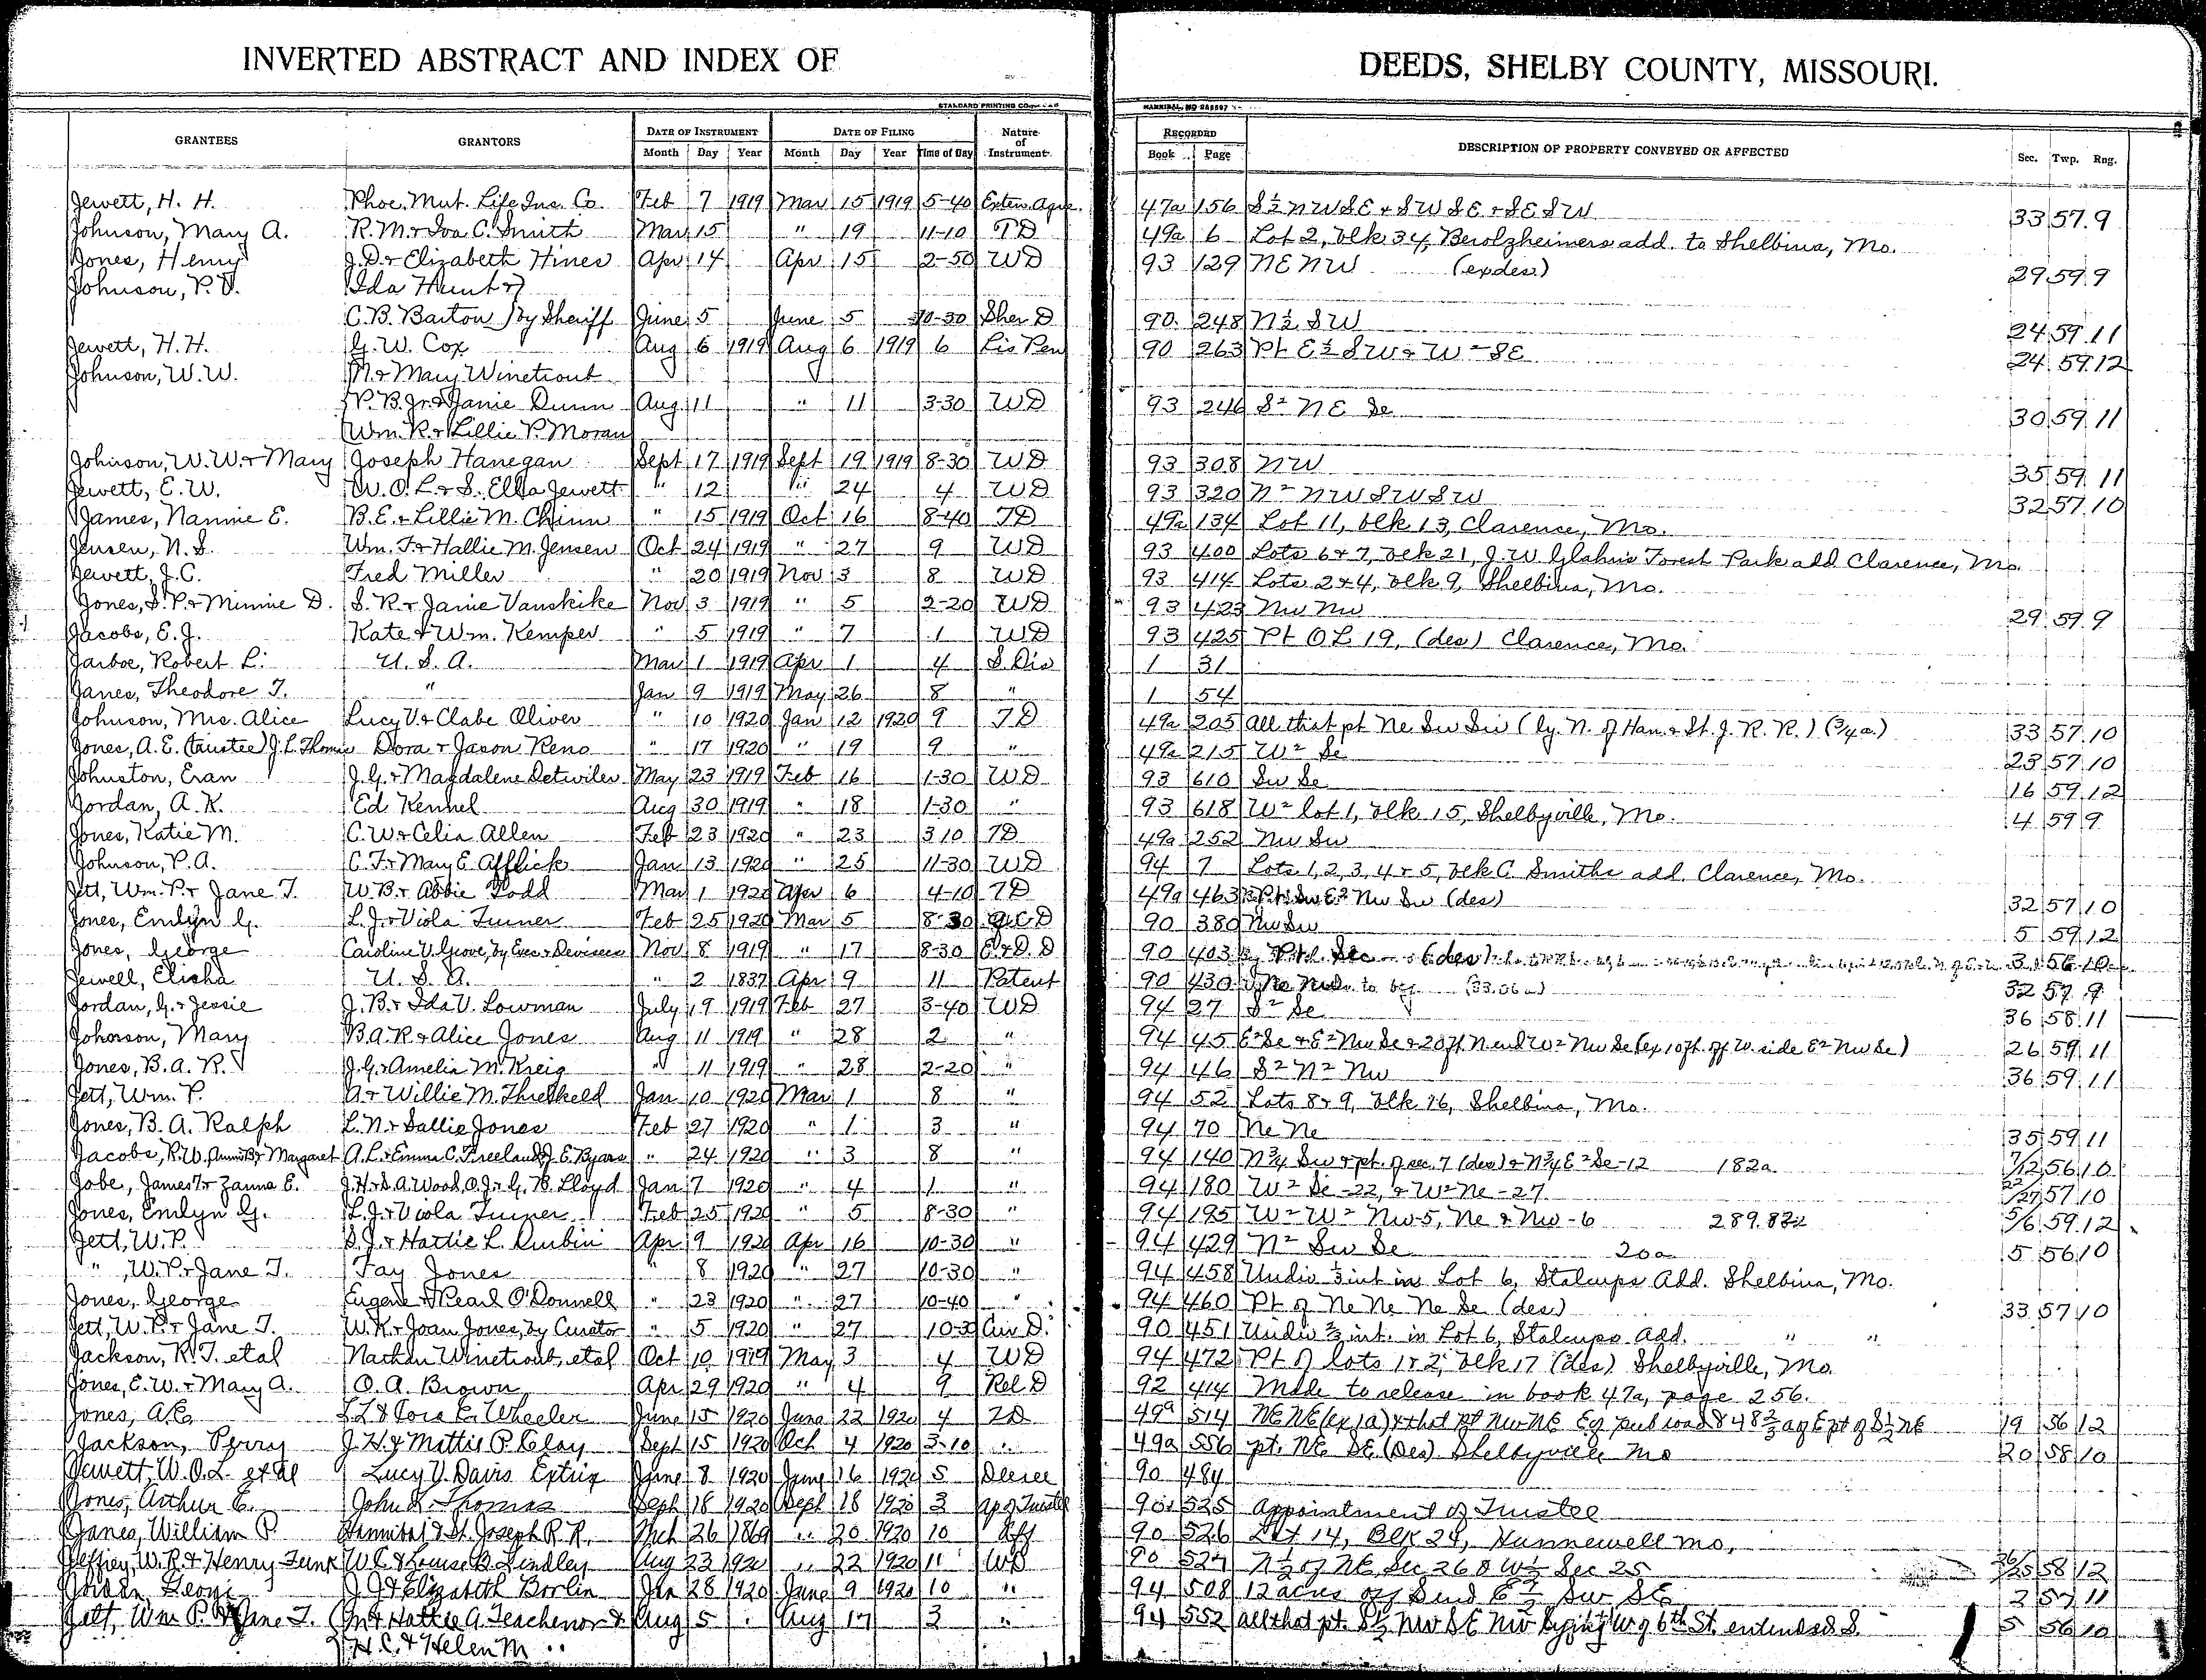 INVERTED ABSTRACT AND INDEX OF DEEDS, SHELBY COUNTY, MISSOURI.
STANDARD PRINTING CO. HANNIBAL, MO
GRANTEES GRANTORS DATE OF INSTRUMENT DATE OF FILING Nature of Instrument RECORDED DESCRIPTION OF PROPERTY CONVEYED OR AFFECTED Sec. Twp. Rng.
Month Day Year Month Day Year Time of Day Book Page
Jewett, H. H. Phoe. Mut. Life Ins. Co. Feb 7 1919 Mar 15 1919 5-40 Exten. Agre. 47a 156 S½ NW SE + SW SE + SE SW 33 57 9
Johnson, Mary A. R. M. + Iva C. Smith Mar 15 " 19 11-10 TD 49a 6 Lot 2, blk 34, Berolzheimers add. to Shelbina, Mo.
Jones, Henry J. D. + Elizabeth Hines Apr 14 Apr 15 2-50 WD 93 129 NE NW (exdes) 29 59 9
Johnson, P. V. Ida Hunt +
C. B. Barton by Sheriff June 5 June 5 10-30 Sher D 90 248 N½ SW 24 59 11
Jewett, H. H. G. W. Cox Aug 6 1919 Aug 6 1919 6 Lis Pen 90 263 Pt E½ SW + W² SE 24 59 12
Johnson, W. W. N. + Mary Winetrout
P. B. Jr. + Janie Dunn Aug 11 " 11 3-30 WD 93 246 S² NE Se 30 59 11
Wm. R. + Lillie P. Moran
Johnson, W. W. + Mary Joseph Hanegan Sept 17 1919 Sept 19 1919 8-30 WD 93 308 NW 35 59 11
Jewett, E. W. W. O. L. + S. Ella Jewett " 12 " 24 4 WD 93 320 N² NW SW SW 32 57 10
James, Nannie E. B. E. + Lillie M. Chinn " 15 1919 Oct 16 8-40 TD 49a 134 Lot 11, blk 13, Clarence, Mo.
Jensen, N. S. Wm. F. + Hallie M. Jensen Oct 24 1919 " 27 9 WD 93 400 Lots 6 + 7, blk 21, J. W. Glahns Forest Park add Clarence, Mo.
Jewett, J. C. Fred Miller " 20 1919 Nov 3 8 WD 93 414 Lots 2 + 4, blk 9, Shelbina, Mo.
Jones, S. P. + Minnie D. S. R. + Janie Vanskike Nov 3 1919 " 5 2-20 WD 93 423 Nw Nw 29 59 9
Jacobs, E. J. Kate + Wm. Kemper " 5 1919 " 7 1 WD 93 425 Pt OL 19, (des) Clarence, Mo.
Jarboe, Robert L. U. S. A. Mar 1 1919 Apr 1 4 S Dis 1 31
Janes, Theodore T. " Jan 9 1919 May 26 8 " 1 54
Johnson, Mrs. Alice Lucy V. + Clabe Oliver " 10 1920 Jan 12 1920 9 TD 49a 205 All that pt Ne Sw Sw (ly. N. of Han. + St. J. R. R.) (¾ a.) 33 57 10
Jones, A. E. (trustee) J. L. Thomas Dora + Jason Reno " 17 1920 " 19 9 " 49a 215 W² Se 23 57 10
Johnston, Eran J. G. + Magdalene Detwiler May 23 1919 Feb 16 1-30 WD 93 610 Sw Se 16 59 12
Jordan, A. K. Ed Kennel Aug 30 1919 " 18 1-30 " 93 618 W² lot 1, blk 15, Shelbyville, Mo.
Jones, Katie M. C. W. + Celia Allen Feb 23 1920 " 23 3 10 TD 49a 252 Nw Sw 4 59 9
Johnson, P. A. C. F. + Mary E. Afflick Jan 13 1920 " 25 11-30 WD 94 7 Lots 1, 2, 3, 4 + 5, blk C. Smiths add. Clarence, Mo.
Jett, Wm. P. + Jane T. W. B. + Abbie Todd Mar 1 1920 Apr 6 4-10 TD 49a 463 Pt Sw E² Nw Sw (des) 32 57 10
Jones, Emlyn G. L. J. + Viola Turner Feb 25 1920 Mar 5 8-30 Q.C.D 90 380 Nw Sw 5 59 12
Jones, George Caroline V. Grove, by Exec + Devisees Nov 8 1919 " 17 8-30 E. + D. D 90 403 Pt Sec (des) 3 56 10
Jewell, Elisha U. S. A. " 2 1837 Apr 9 11 Patent 90 430 Ne Nw 32 57 9
Jordan, G. + Jessie J. B. + Ida V. Lowman July 19 1919 Feb 27 3-40 WD 94 27 S² Se 36 58 11
Johnson, Mary B. A. R. + Alice Jones Aug 11 1919 " 28 2 " 94 45 E² Se + E² Nw Se + 20 ft N end W² Nw Se (ex 10 ft. off W. side E² Nw Se) 26 59 11
Jones, B. A. R. J. G. + Amelia M. Kreig " 11 1919 " 28 2-20 " 94 46 S² N² Nw 36 59 11
Jett, Wm. P. A. + Willie M. Threlkeld Jan 10 1920 Mar 1 8 " 94 52 Lots 8 + 9, blk 16, Shelbina, Mo.
Jones, B. A. Ralph L. N. + Sallie Jones Feb 27 1920 " 1 3 " 94 70 Ne Ne 35 59 11
Jacobs, R. W. + Margaret A. L. + Emma C. Freeland, J. E. Byars " 24 1920 " 3 8 " 94 140 N¾ Sw + pt. of sec. 7 (des) + N¾ E² Se -12 182a. 7/12 56 10
Jobe, James T. + Zanna E. J. H. + D. A. Wood, O. J. + G. B. Lloyd Jan 7 1920 " 4 1 " 94 180 W² Se -22, + W² Ne -27 22/27 57 10
Jones, Emlyn G. L. J. + Viola Turner Feb 25 1920 " 5 8-30 " 94 195 W² W² Nw-5, Ne + Nw -6 289.82a 5/6 59 12
Jett, W. P. S. J. + Hattie L. Durbin Apr 9 1920 Apr 16 10-30 " 94 429 N² Sw Se 20a 5 56 10
" , W. P. + Jane T. Fay Jones " 8 1920 " 27 10-30 " 94 458 Undiv ⅓ int in Lot 6, Stalcups Add. Shelbina, Mo.
Jones, George Eugene + Pearl O'Donnell " 23 1920 " 27 10-40 " 94 460 Pt of Ne Ne Ne Se (des) 33 57 10
Jett, W. P. + Jane T. W. K. + Joan Jones, by Curator " 5 1920 " 27 10-3 Cur D. 90 451 Undiv ⅔ int. in Lot 6, Stalcups Add. " "
Jackson, R. T. etal Nathan Winetrout, etal Oct 10 1919 May 3 4 WD 94 472 Pt of lots 1 + 2, blk 17 (des) Shelbyville, Mo.
Jones, E. W. + Mary A. O. A. Brown Apr 29 1920 " 4 9 Rel D 92 414 Made to release in book 47a, page 256.
Jones, A. E. L. L. & Cora E. Wheeler June 15 1920 June 22 1920 4 TD 49a 514 NE NE (ex 1a) & that pt NW NE Ey pub road & 48⅔ a of E pt of S½ NE 19 56 12
Jackson, Perry J. H. & Mattie P. Clay Sept 15 1920 Oct 4 1920 3-10 " 49a 556 pt. NE SE (Des) Shelbyville Mo 20 58 10
Jewett, W. O. L. et al Lucy V. Davis Extrix June 8 1920 June 16 1920 5 Decree 90 484
Jones, Arthur E. John L. Thomas Sept 18 1920 Sept 18 1920 3 Ap of Trustee 90 525 Appointment of Trustee
Janes, William P. Hannibal & St. Joseph R. R. Mch 26 1869 " 20 1920 10 Aff 90 526 Lot 14, Blk 24, Hunnewell Mo,
Jeffrey, W. R. & Henry Funk W. C. & Louise B. Lindley Aug 23 1920 " 22 1920 11 WD 90 527 N½ of NE Sec 26 & W½ Sec 25 26/25 58 12
Jordan George J. J. & Elizabeth Borlin Jan 28 1920 June 9 1920 10 " 94 508 12 acres off S end E½ Sw SE 2 57 11
Jett, Wm P. & Jane T. M & Hattie A. Teachenor & Aug 5 Aug 17 3 " 94 552 all that pt. S½ NW SE NW lying W of 6th St. extended S. 5 56 10
H. C. & Helen M "